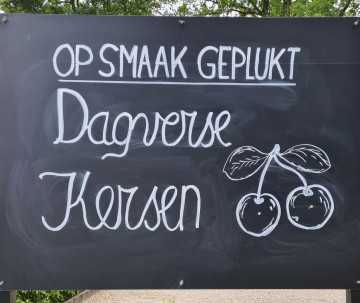 OP SMAAK GEPLUKT
Dagverse
Kersen